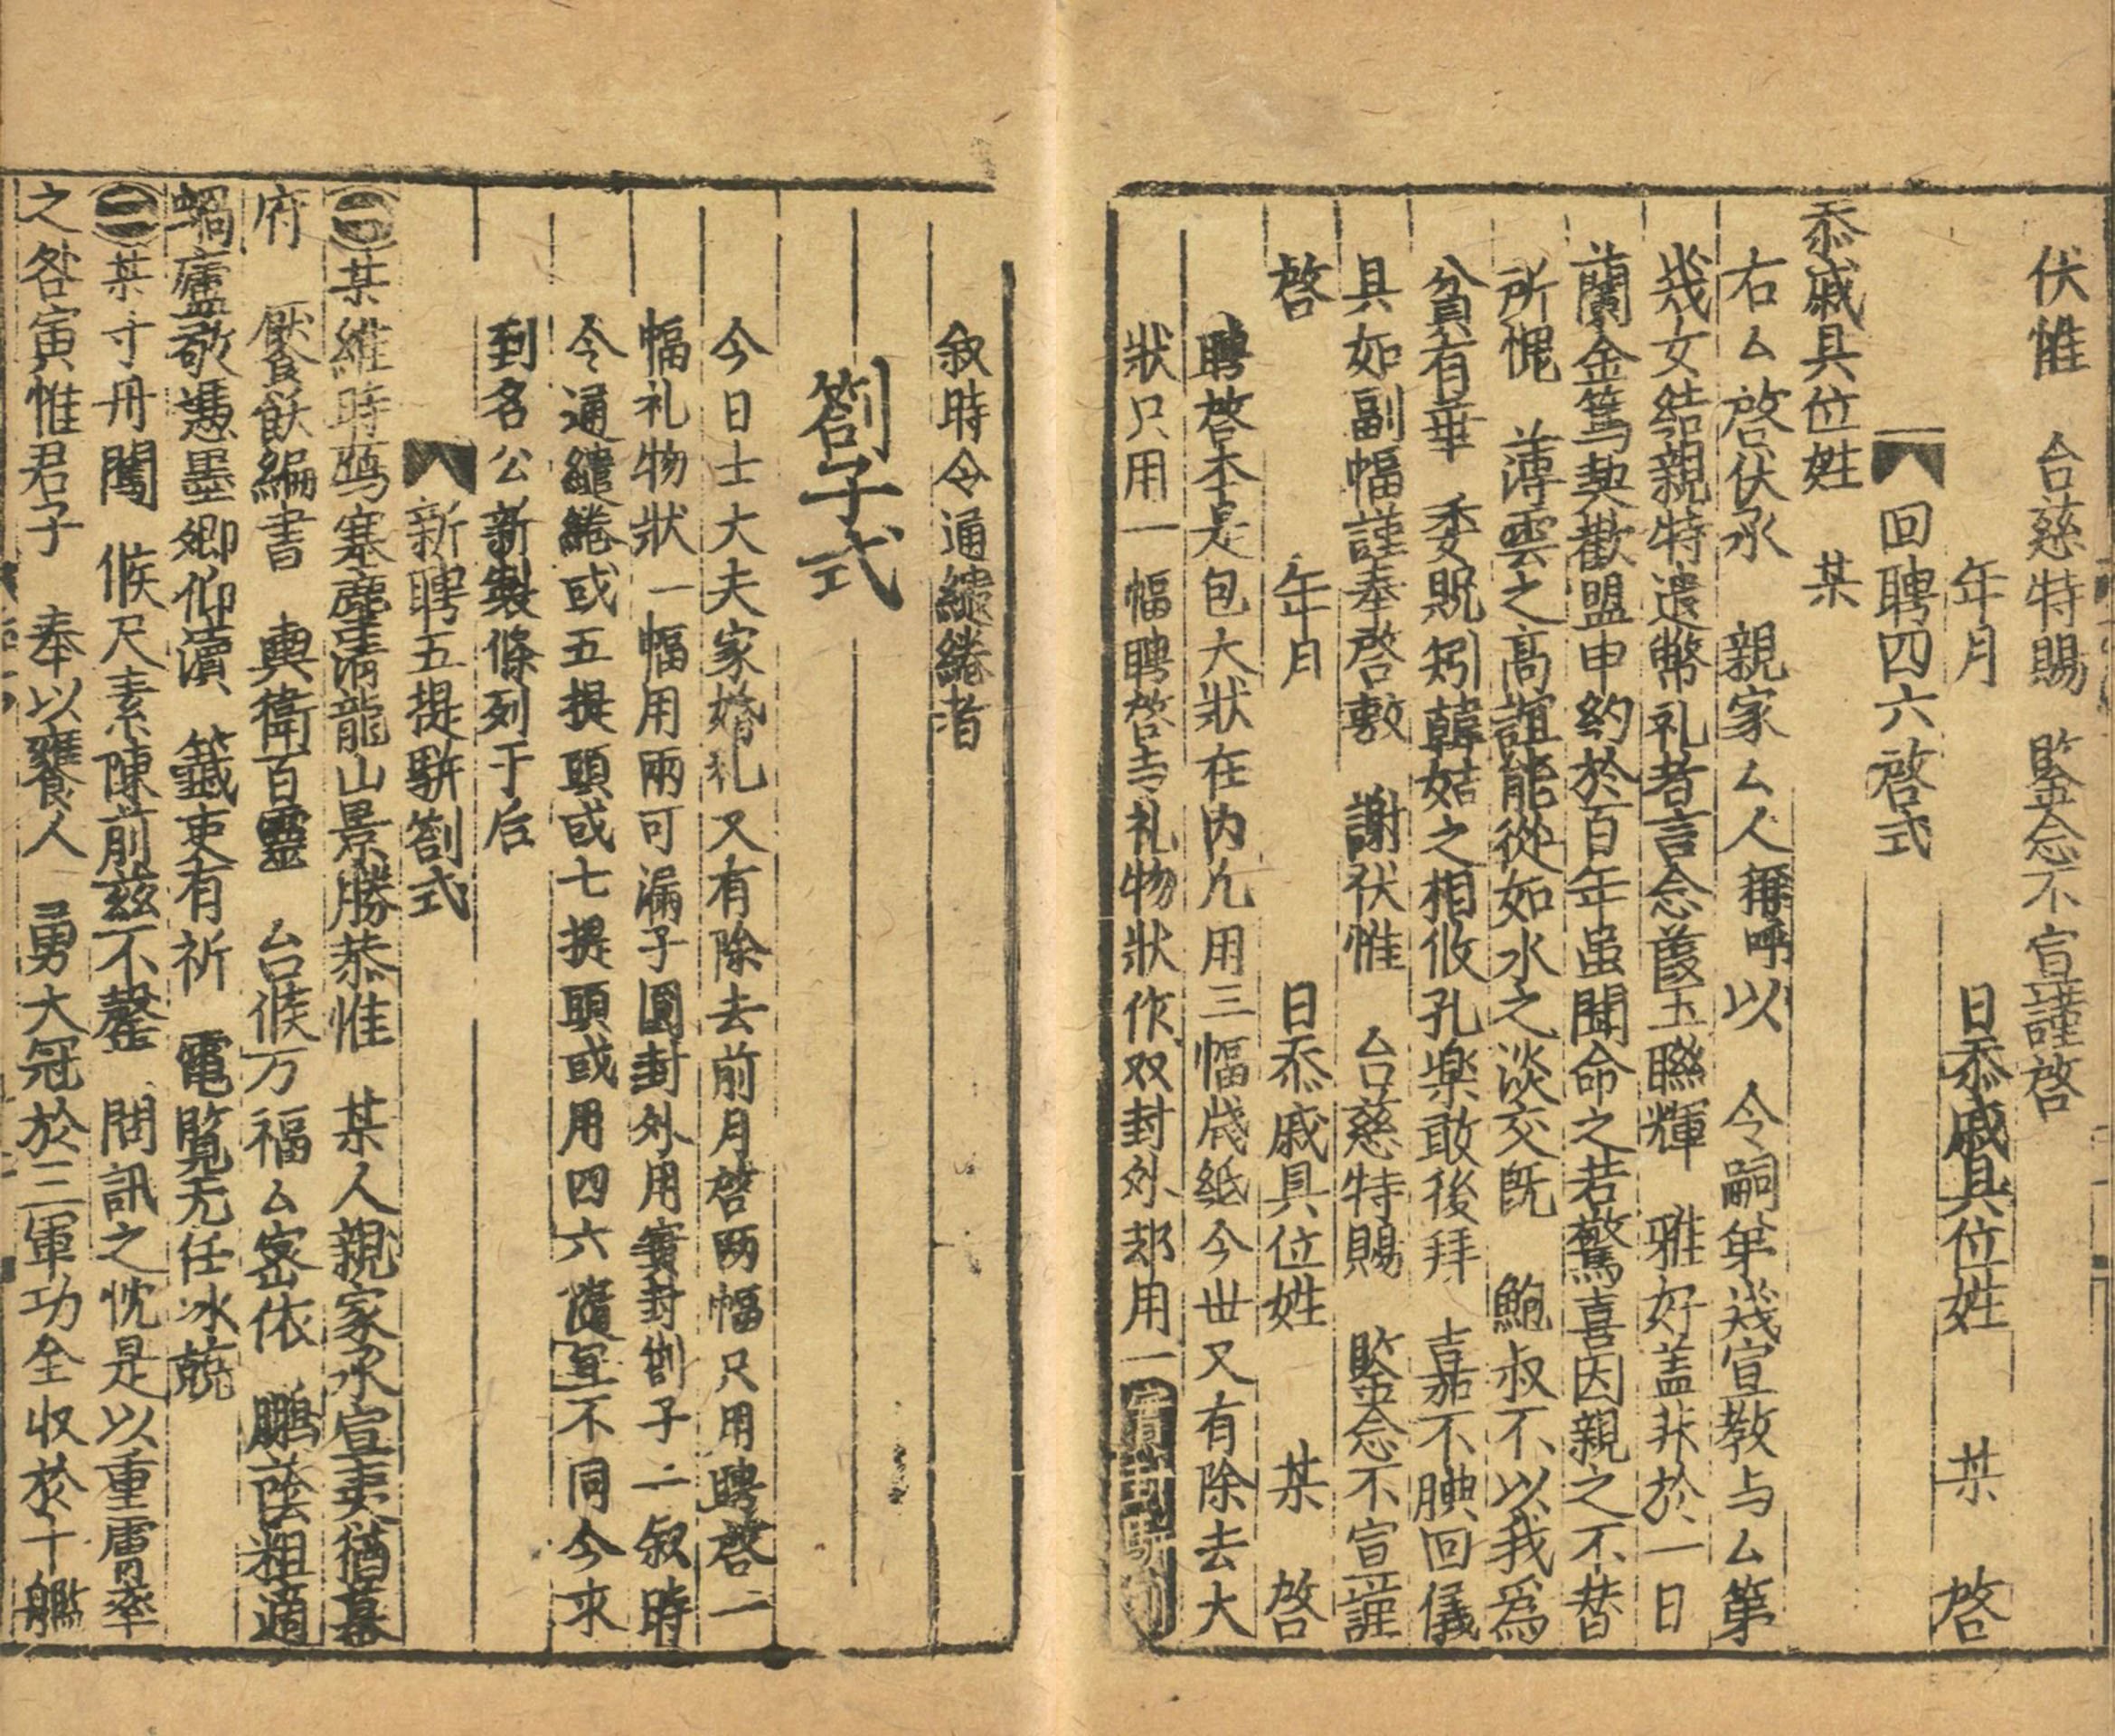 伏惟　台慈特賜　鍳念不宣謹啓
年月　日忝戚具位姓　某　啓
回聘四六啓式
忝戚具位姓　某
右厶啓伏承　親家厶人稱呼以　令嗣弟㡬宣教与厶第
㡬女結親特遣幣礼者言念葭玉聯輝　雅好盖非於一日
蘭金篤契歡盟申約於百年虽聞命之若驚喜因親之不替
所愧　薄雲之髙誼能從如水之淡交旣　鮑叔不以我爲
貧有華　委貺矧韓姞之相攸孔樂敢後拜　嘉不腆回儀
具如副幅謹奉啓敷　謝伏惟　台慈特賜　鍳念不宣謹
啓　年月　日忝戚具位姓　某　啓
聘啓本是包大狀在内凢用三幅牋紙今丗又有除去大
狀只用一幅聘啓与礼物狀作双封外却用一
叙時令通繾綣者
劄子式
今日士大夫家婚礼又有除去前月啓两幅只用聘啓一
幅礼物狀一幅用兩可漏子圓封外用實封劄子二叙時
令通繾綣或五提頭或七提頭或用四六隨宜不同今來
到名公新製條列于后
新聘五提駢劄式
㊀某維時鴈塞塵清龍山景勝恭惟　某人親家承宣夷猶幕
府　厭飫編書　輿衛百靈　台候万福厶宻依　鵬蔭粗適
蝸廬敢慿墨卿仰瀆　籤吏有祈　電覧无任冰兢
㊁某寸丹闖　候尺素陳前兹不罄　問訊之忱是以重膚率
之咎寅惟君子　奉以饔人　勇大冠於三軍功全收於千艦